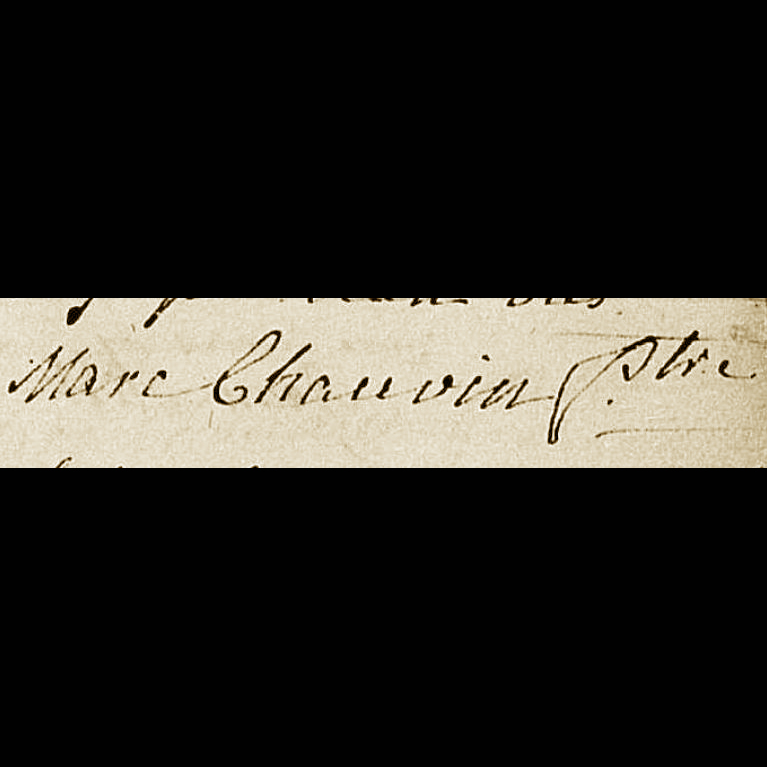 Marc Chauvin Ptre